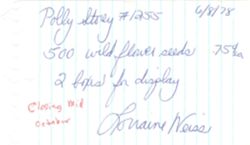 Polly Story #1255 6/8/78
500 wild flower seeds 75¢ ea
2 boxes for display
Closing Mid
October
Lorraine Weiss